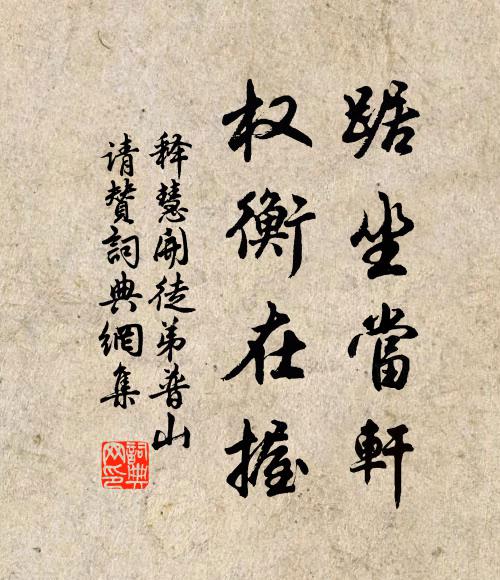 踞坐當軒
权衡在握
释慧開徒弟普山
请赞詞典網集
詞典网印